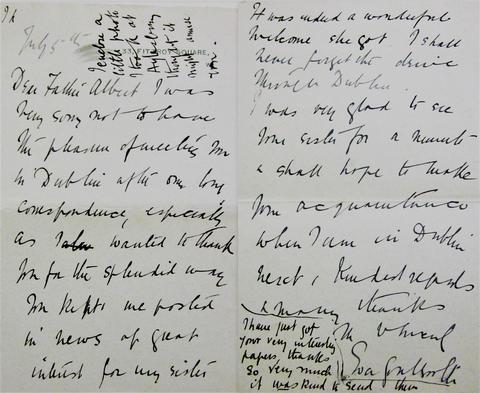 July 5th
33, FITZROY SQUARE,
I enclose a
little photo
I took at
Aylesbury
thought it
might amuse
you.
Dear Father Albert I was
very sorry not to have
the pleasure of meeting you
in Dublin after our long
correspondence, especially
as I wanted to thank
you for the splendid way
you kept me posted
in news of great
interest for my sister
It was indeed a wonderful
welcome she got. I shall
never forget the drive
through Dublin.
I was very glad to see
your sister for a moment
& shall hope to make
your acquaintance
when I am in Dublin
next, Kindest regards
& many thanks
Yrs sincerely
Eva Gore Booth
I have just got
your very interesting
papers, thanks
so very much
it was kind to send them